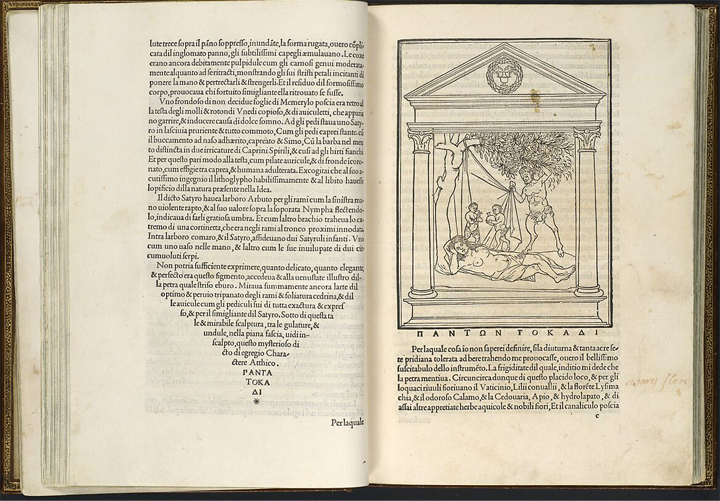 lute trece sopra il pãno soppresso, inundãte, la forma rugata, ouero cõpli
cata di inglomato panno, gli subtilissimi capegli æmulauano. Le coxe
erano ancora debitamente pulpidule cum gli carnosi genui moderata
mente alquanto ad se ritracti, monstrando gli sui stricti petali incitanti di
ponere la mano & pertractarli & strengerli. Et il residuo dil formosissimo
corpo, prouocaua chi fortuito simigliante ella ritrouato se fusse.
Vno frondoso di non decidue foglie di Memerylo poscia era retro al
la testa degli molli & rotondi Vnedi copioso, & di auiculetti, che appari
no garrire, & inducere causa di dolce somno. Ad gli pedi staua uno Saty
ro in lasciuia pruriente & tutto commoto, Cum gli pedi caprei stante. cũ
il buccamento ad naso adhærito, capreato & Simo, Cũ la barba nel men
to distincta in due irricature di Caprini Spirili, & cusì ad gli hirti fianchi
Et per questo pari modo alla testa, cum pilate auricule, & di fronde icoro-
nato, cum effigie tra caprea, & humana adulterata. Excogitai che al suo a-
cutissimo ingegnio il lithoglypho habilissimamente & al libito hauesse
lo pificio dilla natura præsente nella Idea.
Il dicto Satyro hauea larboro Arbuto per gli rami cum la sinistra ma-
no uiolente rapto, & al suo ualore sopra la soporata Nympha flectendo-
lo, indicaua di farli gratiosa umbra. Et cum laltro brachio traheua lo ex-
tremo di una cortinetta, che era negli rami al tronco proximi innodata
Intra larboro comaro, & il Satyro, assideuano dui Satyruli infanti. Vno
cum uno uaso nelle mano, & laltro cum le sue inuolupate di dui cir-
cumuoluti serpi.
Non potria sufficiente exprimere, quanto delicato, quanto elegante,
& perfecto era questo figmento, accedeua & alla uenustate illustro dil-
la petra quale striso eburo. Miraua summamente ancora larte dil
optimo & peruio tripanato degli rami & foliatura cedrina, & dil
le auicule cum gli pediculi sui di tutta exactura & expres
so, & per il simigliante dil Satyro. Sotto di questa ta
le & mirabile scalptura, tra le gulature, &
undule, nella piana fascia, uidi in-
scalpto, questo mysterioso di
cto di egregio Chara-
ctere Atthico.
ΠΑΝΤΑ
ΤΟΚΑ
ΔΙ
*
Per laquale
ΠΑΝΤΩΝ ΤΟΚΑΔΙ
Per laquale cosa io non saperei definire, si la diuturna & tanta acre se-
te pridiana tolerata ad bere trahendo me prouocasse, ouero il bellissimo
suscitabulo dello instrumẽto. La frigiditate dil quale, inditio mi dede che
la petra mentiua. Circuncirca dunque di questo placido loco, & per gli
loquaci riuuli fioriuano il Vaticinio, Lilii conuallii, & la florẽte Lysima
chia, & il odoroso Calamo, & la Cedouaria, Apio, & hydrolapato, & di
assai altre appretiate herbe aquicole & nobili fiori, Et il canaliculo poscia
e